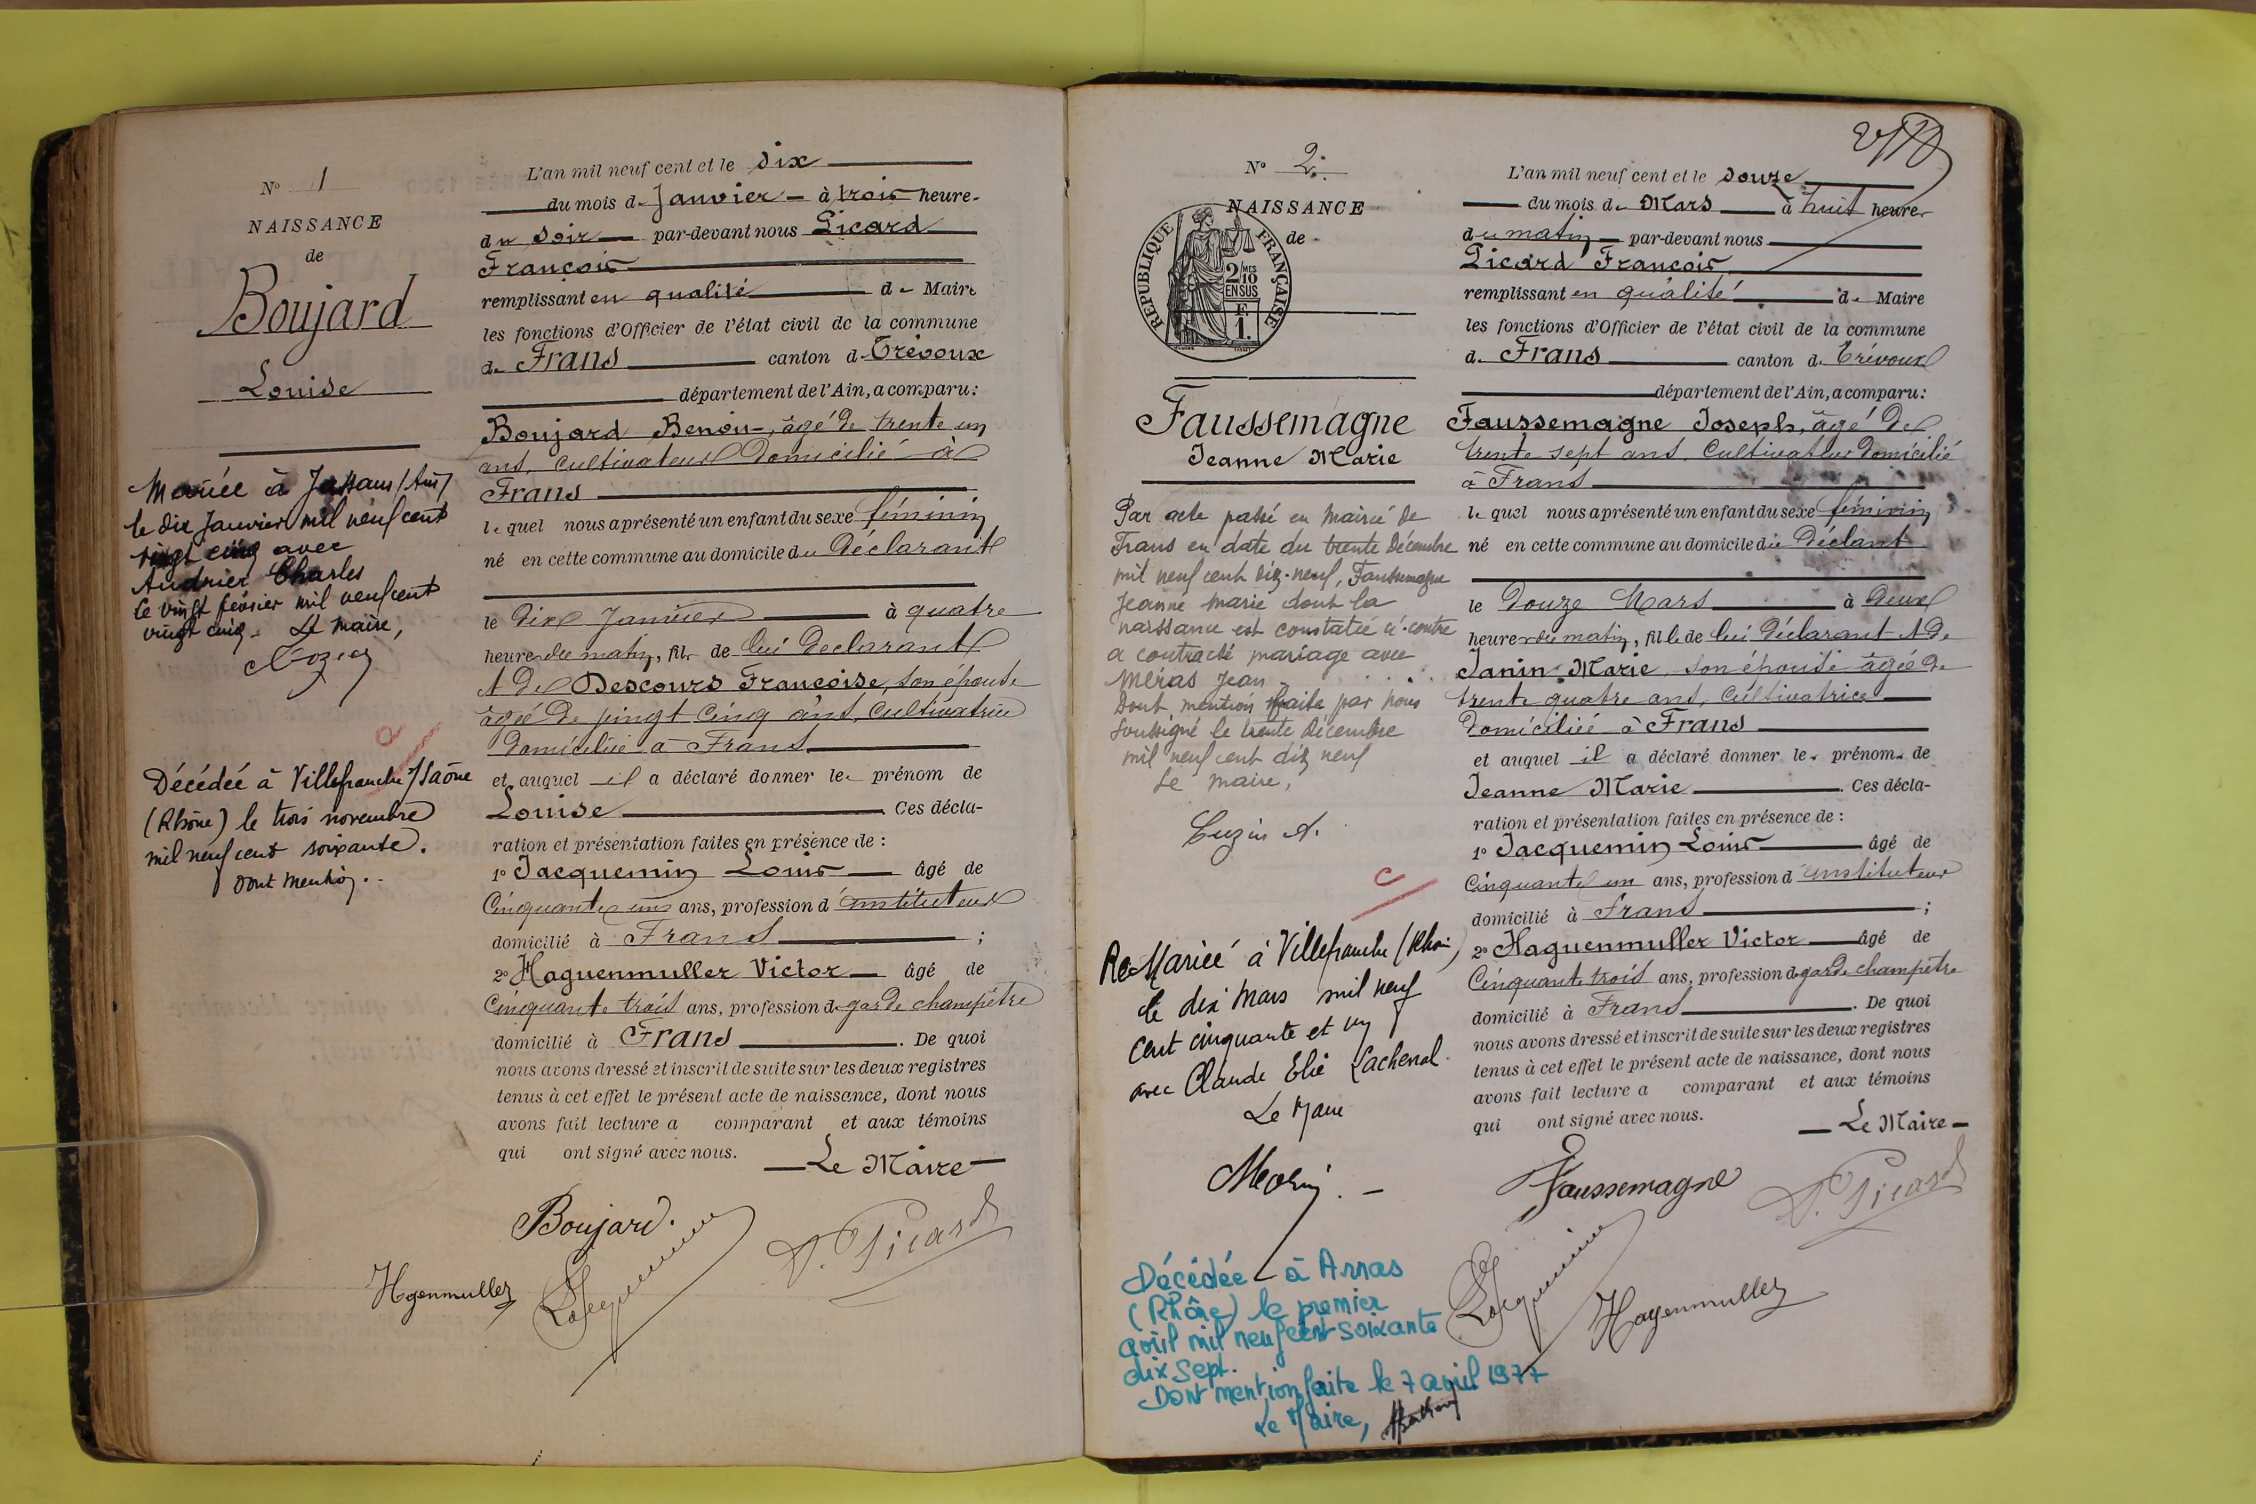 N° 1
NAISSANCE
de
Boujard
Louise
Mariée à Jassans (Ain)
le dix Janvier mil neuf cent
vingt cinq avec
Audrier Charles
le vingt février mil neuf cent
vingt cinq. Le Maire,
Décédée à Villefranche s/Saône
(Rhône) le trois novembre
mil neuf cent soixante.
Dont mention.
L'an mil neuf cent et le dix
du mois de Janvier à trois heures
du soir par-devant nous Picard
François
remplissant en qualité de Maire
les fonctions d'Officier de l'état civil de la commune
de Frans canton de Trévoux
département de l'Ain, a comparu:
Boujard Benoit, âgé de trente un
ans, cultivateur domicilié à
Frans
le quel nous a présenté un enfant du sexe féminin
né en cette commune au domicile du Déclarant
le dix Janvier à quatre
heures du matin, fille de lui Déclarant
& de Descours Françoise, son épouse
âgée de vingt cinq ans, cultivatrice
domiciliée à Frans
et auquel il a déclaré donner le prénom de
Louise Ces décla-
ration et présentation faites en présence de :
1° Jacquemin Louis âgé de
Cinquante un ans, profession d'instituteur
domicilié à Frans ;
2° Haguenmuller Victor âgé de
Cinquante trois ans, profession de garde champêtre
domicilié à Frans. De quoi
nous avons dressé et inscrit de suite sur les deux registres
tenus à cet effet le présent acte de naissance, dont nous
avons fait lecture a comparant et aux témoins
qui ont signé avec nous.
Le Maire
Boujard.
Hagenmuller Jacquemin F. Picard
N° 2.
NAISSANCE
de
RÉPUBLIQUE FRANÇAISE
2/10 MES
EN SUS
F.
1.
Faussemagne
Jeanne Marie
Par acte passé en mairie de
Frans en date du trente Décembre
mil neuf cent dix-neuf, Faussemagne
Jeanne Marie dont la
naissance est constatée ci-contre
a contracté mariage avec
Meras Jean
Dont mention faite par nous
soussigné le trente décembre
mil neuf cent dix neuf
Le maire,
Cuzin A.
ReMariée à Villefranche (Rhône)
le dix Mars mil neuf
cent cinquante et un
avec Claude Elie Lachenal.
Le Maire
Décédée à Arnas
(Rhône) le premier
avril mil neuf cent soixante
dix sept.
Dont mention faite le 7 avril 1977
Le Maire,
L'an mil neuf cent et le douze
du mois de Mars à huit heures
du matin par-devant nous
Picard François
remplissant en qualité de Maire
les fonctions d'Officier de l'état civil de la commune
de Frans canton de Trévoux
département de l'Ain, a comparu:
Faussemagne Joseph, âgé de
trente sept ans, Cultivateur domicilié
à Frans
le quel nous a présenté un enfant du sexe féminin
né en cette commune au domicile du Déclant
le douze Mars à deux
heures du matin, fille de lui Déclarant & de
Janin Marie son épouse âgée de
trente quatre ans, cultivatrice
domiciliée à Frans
et auquel il a déclaré donner les prénoms de
Jeanne Marie. Ces décla-
ration et présentation faites en présence de :
1° Jacquemin Louis âgé de
Cinquante un ans, profession d'instituteur
domicilié à Frans ;
2° Haguenmuller Victor âgé de
Cinquante trois ans, profession de garde champêtre
domicilié à Frans. De quoi
nous avons dressé et inscrit de suite sur les deux registres
tenus à cet effet le présent acte de naissance, dont nous
avons fait lecture a comparant et aux témoins
qui ont signé avec nous.
Le Maire
Faussemagne F. Picard
Jacquemin Hagenmuller